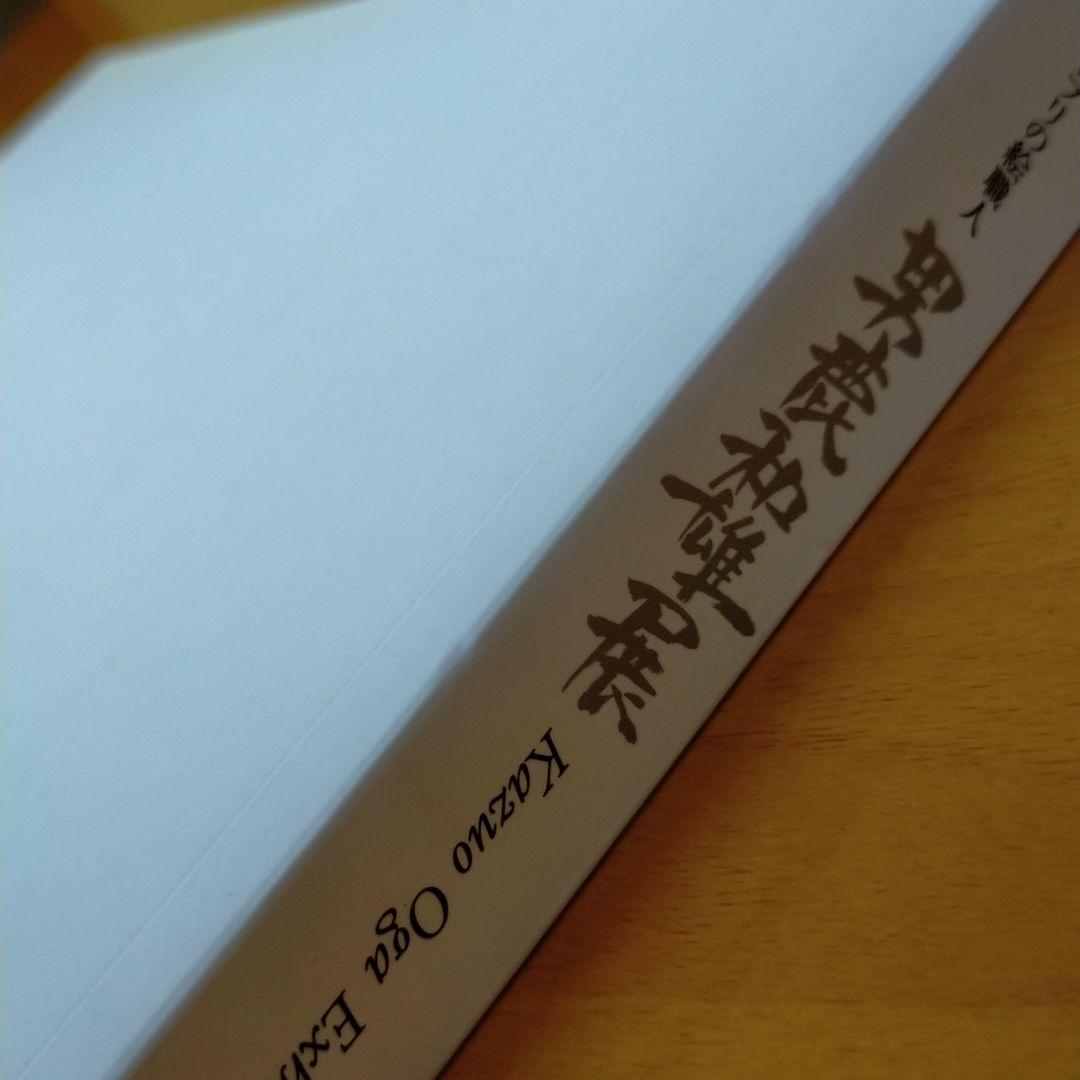 ブリの絵職人
男鹿和雄展
Kazuo Oga Exh